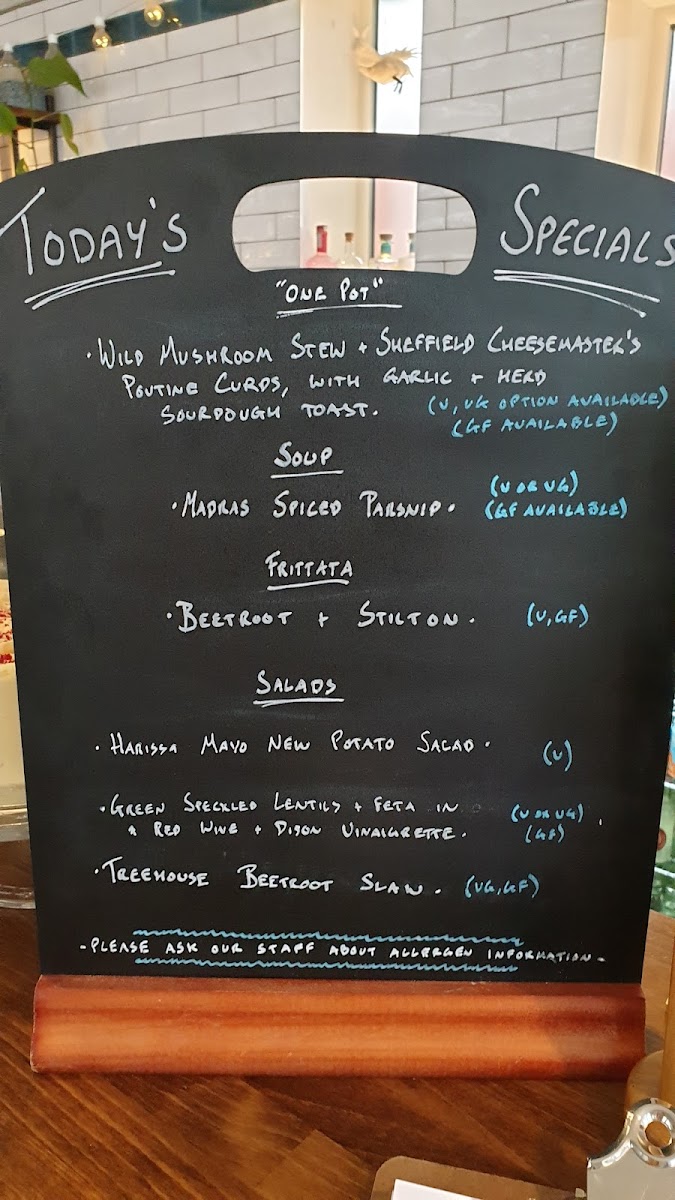 TODAY'S SPECIALS
"ONE POT"
· WILD MUSHROOM STEW + SHEFFIELD CHEESEMASTER'S
POUTINE CURDS, WITH GARLIC + HERB
SOURDOUGH TOAST. (V, VG OPTION AVAILABLE)
(GF AVAILABLE)
SOUP
(V OR VG)
· MADRAS SPICED PARSNIP. (GF AVAILABLE)
FRITTATA
· BEETROOT + STILTON. (V, GF)
SALADS
· HARISSA MAYO NEW POTATO SALAD. (V)
· GREEN SPECKLED LENTILS + FETA IN (V OR VG)
A RED WINE + DIJON VINAIGRETTE. (GF)
· TREEHOUSE BEETROOT SLAW. (VG, GF)
- PLEASE ASK OUR STAFF ABOUT ALLERGEN INFORMATION -